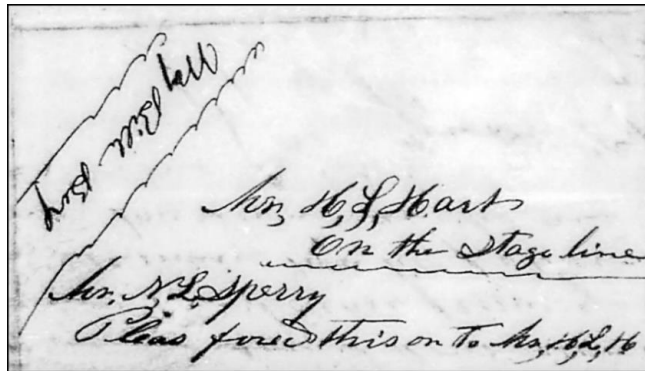 Way Bill
Mr, H, L, Hart
On the Stage line
Mr. N. L. Sperry
Pleas this on to Mr, H, L, H